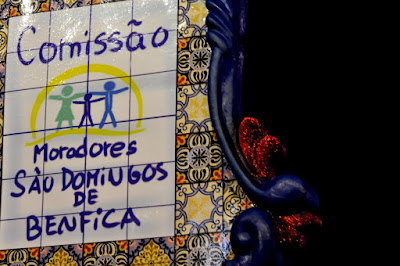 Comissão
Moradores
SÃO DOMINGOS
DE
BENFICA